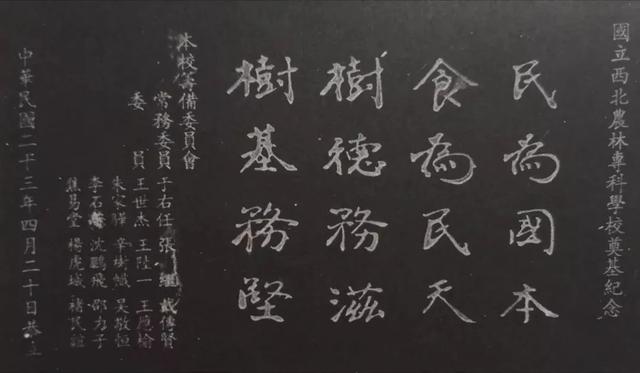 國立西北農林專科學校奠基紀念
民為國本
食為民天
樹德務滋
樹基務堅
本校籌備委員會
常務委員 于右任 張繼 戴傳賢
委員 王世杰 王陸一 王應榆
朱家驊 辛樹幟 吳敬恒
李石曾 沈鵬飛 邵力子
焦易堂 楊虎城 褚民誼
中華民國二十三年四月二十日立